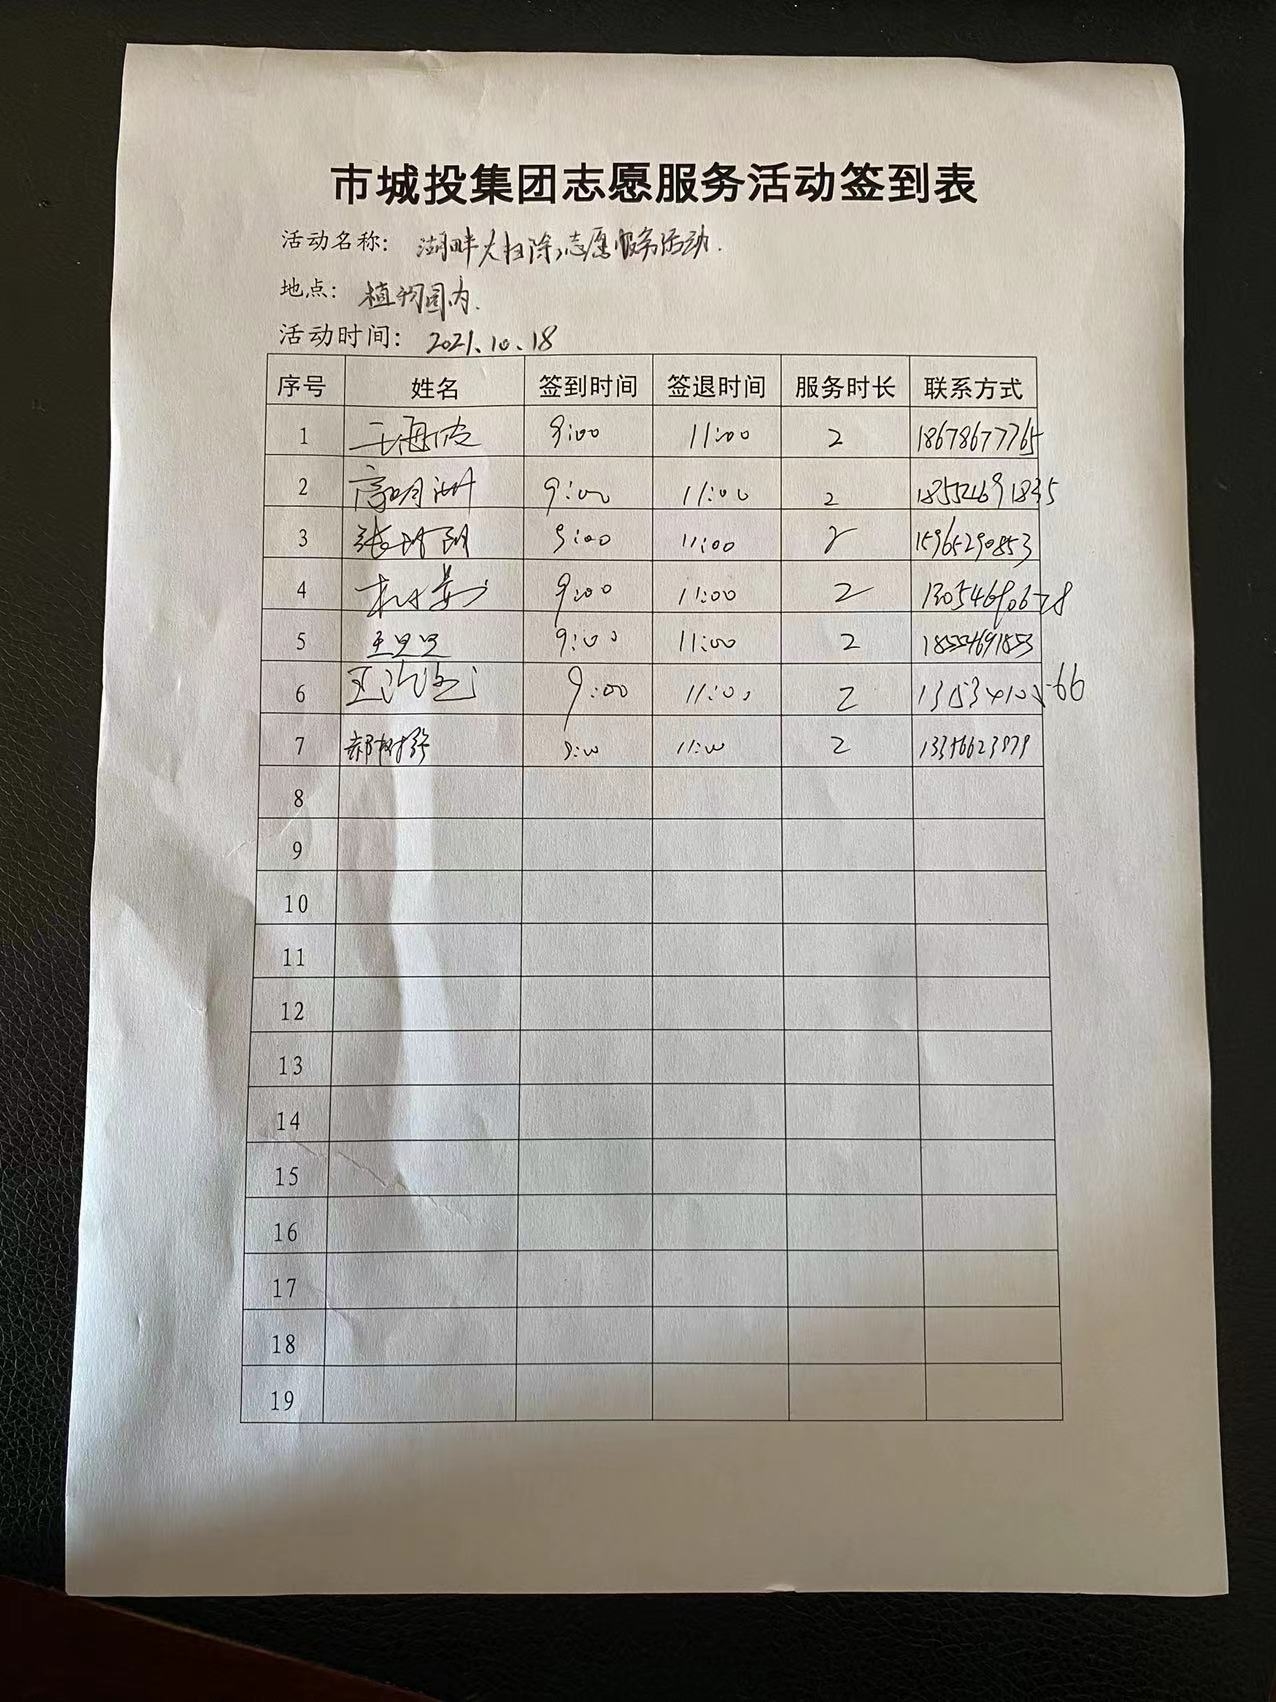 市城投集团志愿服务活动签到表
活动名称: 湖畔大扫除志愿服务活动.
地点: 植物园内.
活动时间: 2021.10.18
序号 姓名 签到时间 签退时间 服务时长 联系方式
1 王海波 9:00 11:00 2 18678677765
2 高明洲 9:00 11:00 2
3 9:00 11:00 2 15965290853
4 9:00 11:00 2
5 9:00 11:00 2 18554691853
6 9:00 11:00 2
7 郝树峰 9:00 11:00 2
8
9
10
11
12
13
14
15
16
17
18
19